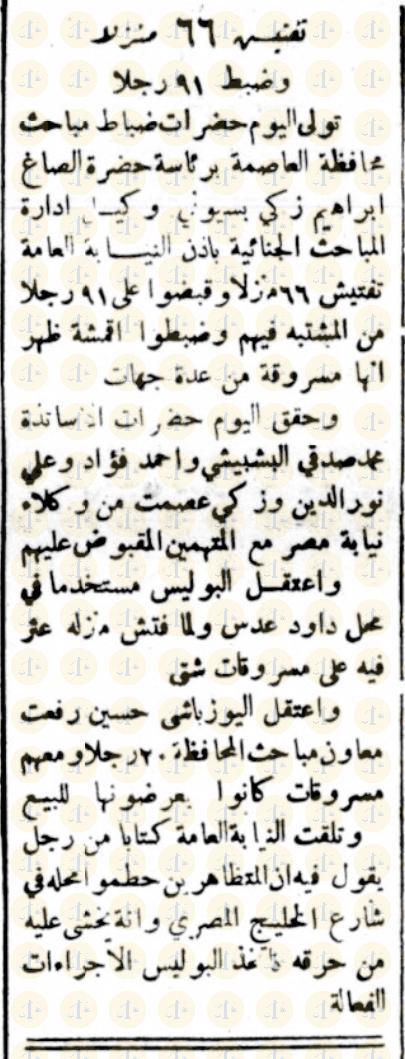 تفتيش ٦٦ منزلا
وضبط ٩١ رجلا
تولى اليوم حضرات ضباط مباحث
محافظة العاصمة برئاسة حضرة الصاغ
ابراهيم زكي بسيوني وكيل ادارة
المباحث الجنائية باذن النيابة العامة
تفتيش ٦٦ منزلا وقبضوا على ٩١ رجلا
من المشتبه فيهم وضبطوا اقمشة ظهر
انها مسروقة من عدة جهات
وحقق اليوم حضرات الاساتذة
محمد صدقي البشبيشي واحمد فؤاد وعلي
نور الدين وزكي عصمت من وكلاء
نيابة مصر مع المتهمين المقبوض عليهم
واعتقل البوليس مستخدما في
محل داود عدس ولما فتش منزله عثر
فيه على مسروقات شتى
واعتقل اليوزباشى حسين رفعت
معاون مباحث المحافظة ٢٠ رجلا ومعهم
مسروقات كانوا يعرضونها للبيع
وتلقت النيابة العامة كتابا من رجل
يقول فيه ان المتظاهرين حطموا محله في
شارع الخليج المصري وانه يخشى عليه
من حرقه فاتخذ البوليس الاجراءات
الفعالة